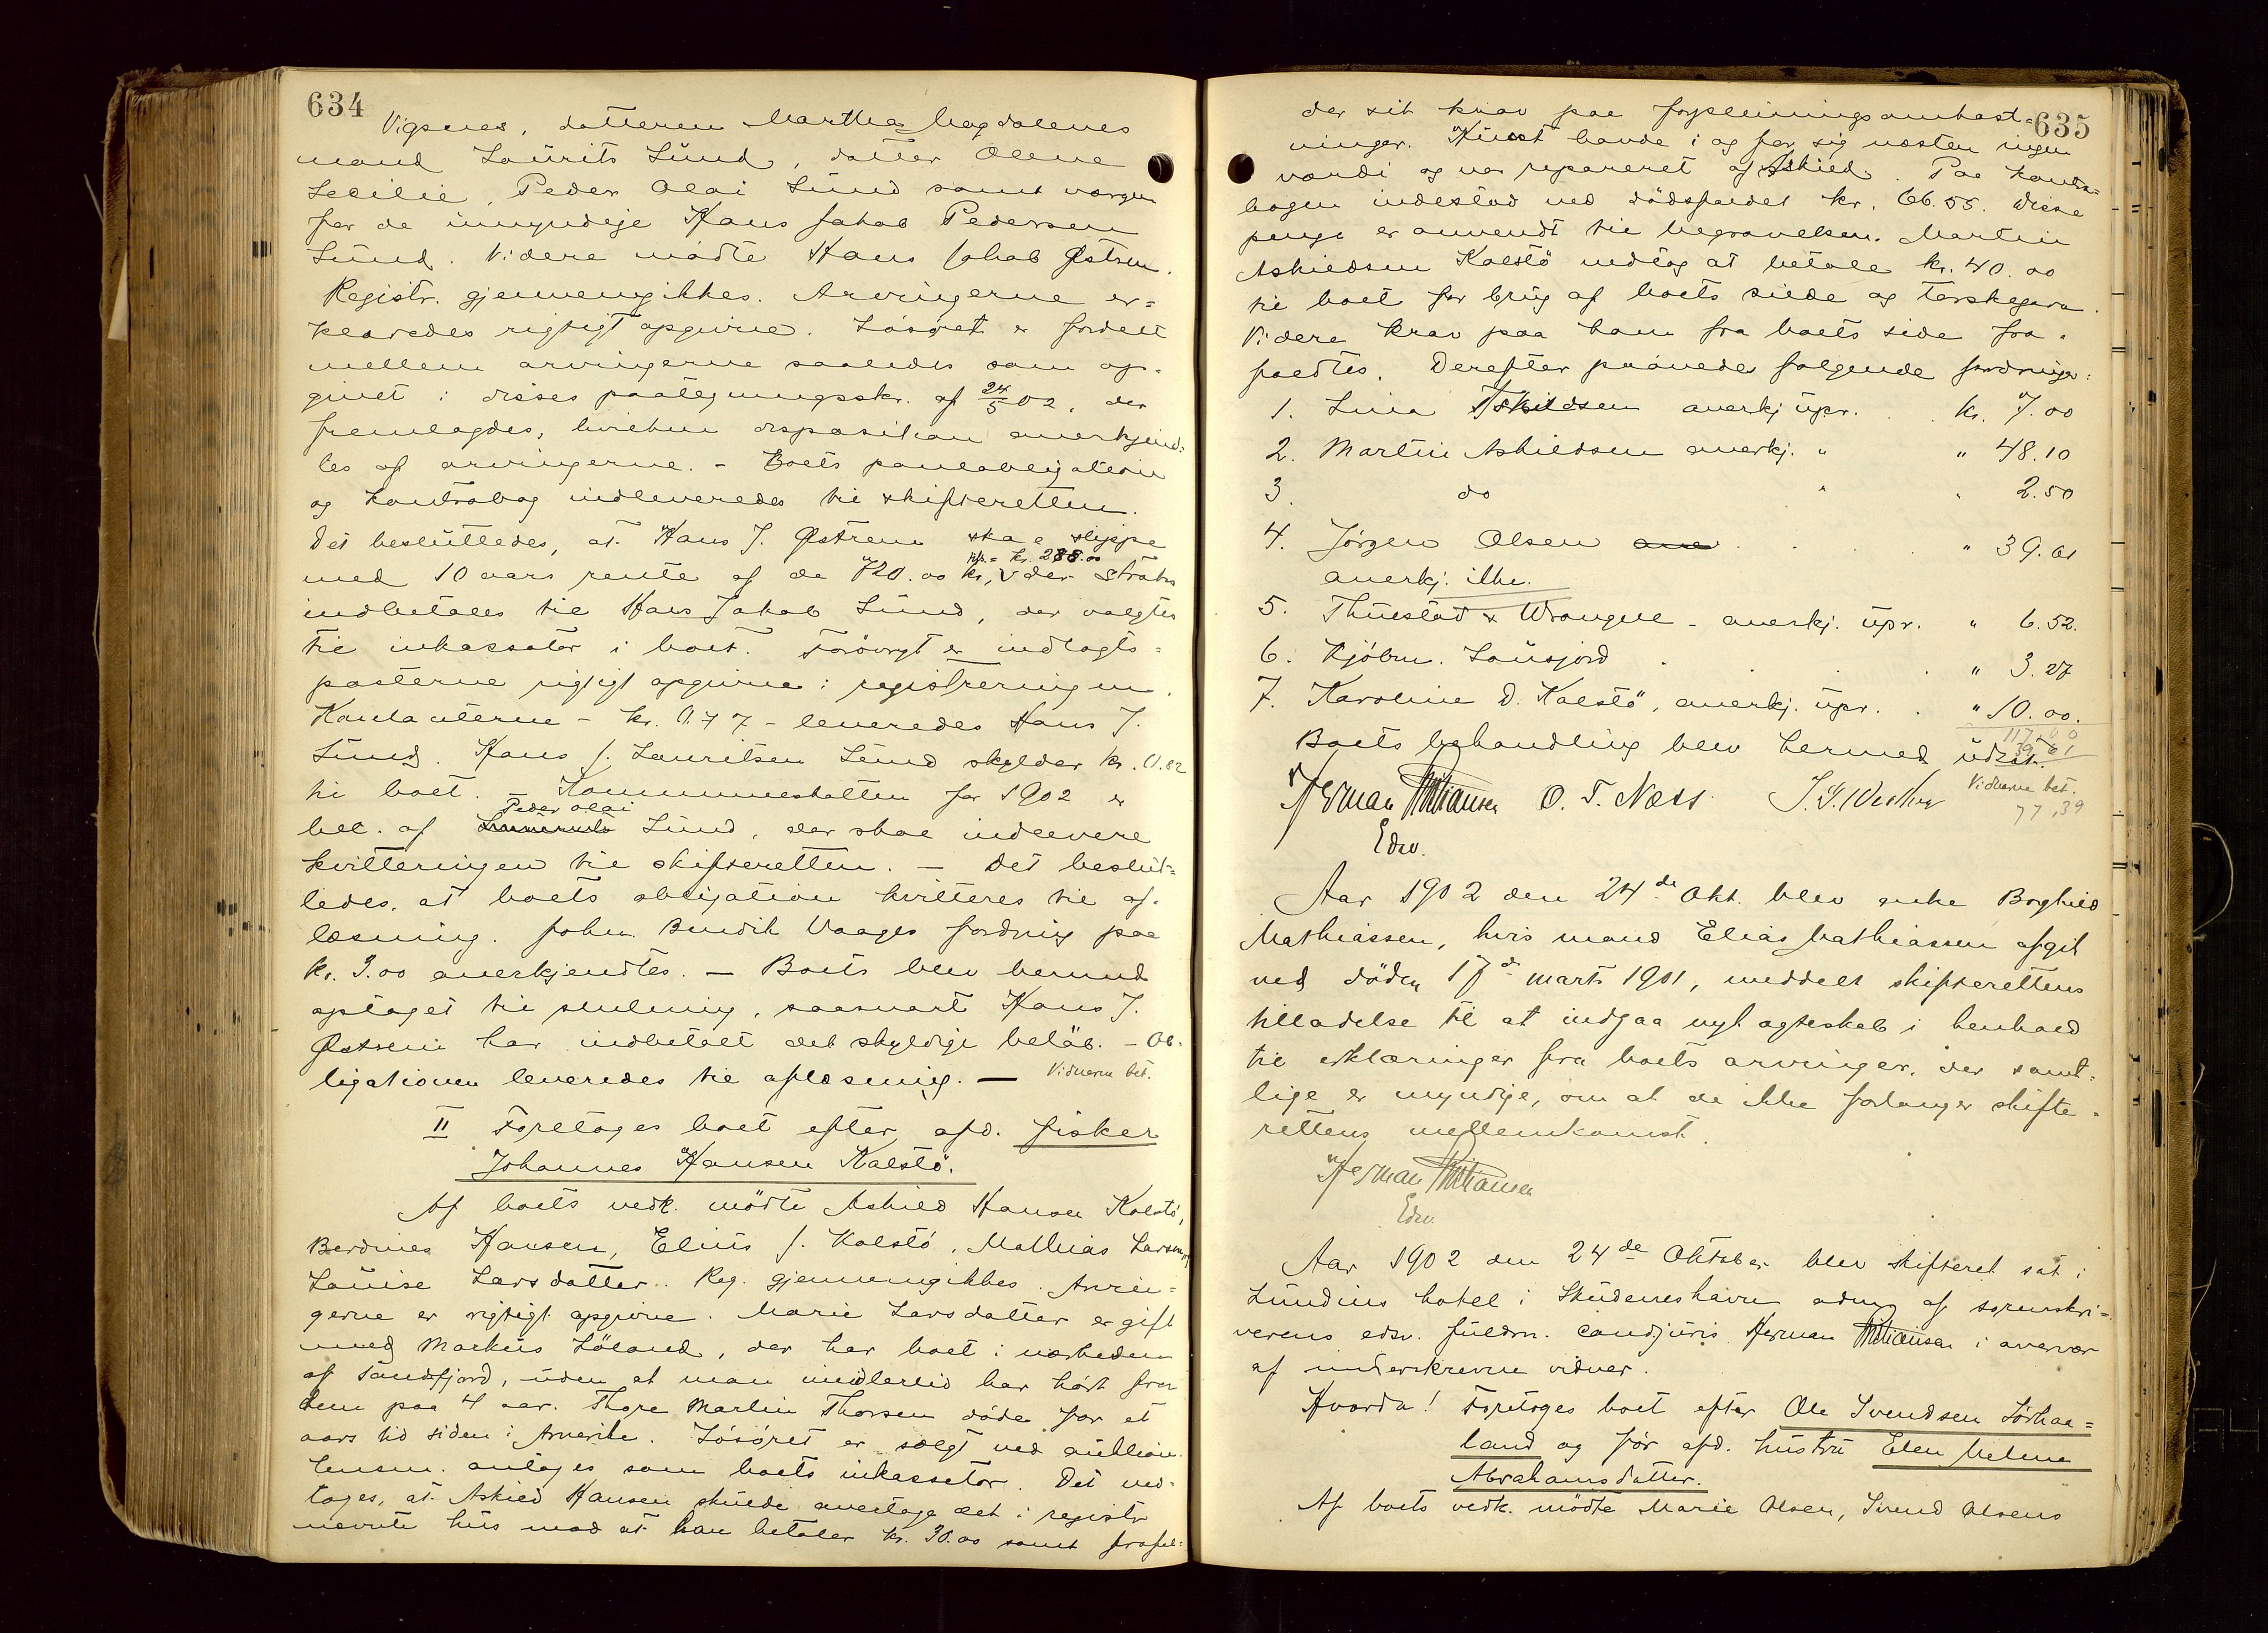 634
Vigsnes, datteren Martha Magdalenes
mand Laurits Lund, datter Olene
Secilie, Peder Olai Lund samt værgen
for de umyndige Hans Jakob Pedersen
Lund. Videre mødte Hans Jakob Østrem.
Registr. gjennemgikkes. Arvingerne er=
klæredes rigtigt opgivne. Løsøret er fordelt
mellem arvingerne saaledes som op=
givet i disses paategningsskr. af 24/5 02, der
fremlagdes, hvilken disposition anerkjend=
tes af arvingerne. - Boets panteobligation
og kontrabog indleveredes til skifteretten.
Det besluttedes, at Hans J. Østrem skal slippe
med 10 aars rente af de 720.00 kr, der straks
kr. 288.00
indbetales til Hans Jakob Lund, der valgtes
til inkassator i boet. Forøvrigt er indtægts=
posterne rigtigt opgivne i registreringen.
Kontanterne - kr. 0.77 - leveredes Hans J.
Lund. Hans J. Lauritsen Lund skylder kr. 0.82
til boet. - Kommuneskatten for 1902 er
Peder Olai
bet. af Lund, der skal indlevere
kvitteringen til skifteretten. - Det beslut=
tedes, at boets obligation kvitteres til af=
læsning. John Bendik Vaages fordring paa
kr. 3.00 anerkjendtes. - Boets blev hermed
optaget til slutning, saasnart Hans J.
Østrem har indbetalt det skyldige beløb. - Ob=
ligationen leveredes til aflæsning. - Vidnerne bet.
II Foretoges boet efter afd. fisker
Johannes Hansen Kalstø.
Af boets vedk. mødte Askild Hansen Kalstø,
Berdines Hansen, Elius J. Kalstø, Mathias Larsen,
Louise Larsdatter. Reg. gjennemgikkes. Arvin=
gerne er rigtigt opgivne. Marie Larsdatter er gift
med Markus Løland, der har boet i nærheden
af Sandfjord, uden at man imidlertid har hørt fra
dem paa 4 aar. Thore Martin Thorsen døde for et
aars tid siden i Amerika. Løsøret er solgt ved auktion.
Lensm. antages som boets inkassator. Det ved=
toges, at Askild Hansen skulde overtage det i registr.
nævnte hus mod at han betaler kr. 30.00 samt frafal=
635
der sit krav paa forpleiningsomkost=
ninger. Huset havde i og for sig næsten ingen
værdi og var repareret af Askild. Paa kontra=
bogen indestod ved dødsfaldet kr. 66.55. Disse
penge er anvendt til begravelsen. Martin
Askildsen Kalstø vedtog at betale kr. 40.00
til boet for brug af boets silde og torskegarn.
Videre krav paa ham fra boets side fra=
faldtes. Derefter prøvedes følgende fordringer:
1. Lina Askildsen anerkj upr. kr. 7.00
2. Martin Askildsen anerkj. " " 48.10
3. do " " 2.50
4. Jørgen Olsen ane " 39.61
anerkj. ikke.
5. Thuestad & Wrangell - anerkj. upr. " 6.52.
6. Kjøbm. Lausjord " 3.27
7. Karoline D. Kalstø, anerkj. upr. " 10.00.
117.00
39.61
Boets behandling blev hermed udsat.
Vidnerne bet.
77,39
Herman O. T. Næss.
Edsv.
Aar 1902 den 24de Okt. blev enke Borghild
Mathiassen, hvis mand Elias Mathiassen afgik
ved døden 17de marts 1901, meddelt skifterettens
tilladelse til at indgaa nyt ægteskab i henhold
til erklæringer fra boets arvinger, der samt=
lige er myndige, om at de ikke forlanger skifte=
rettens mellemkomst.
Herman
Edsv.
Aar 1902 den 24de Oktober blev skifteret sat i
Lundins hotel i Skudeneshavn adm. af sorenskri=
verens edsv. fuldm. cand juris Herman i overvær
af underskrevne vidner.
Hvorda! Foretoges boet efter Ole Svendsen Sørhaa=
land og før afd. hustru Elen Malene
Abrahamsdatter.
Af boets vedk. mødte Marie Olsen, Svend Olsens